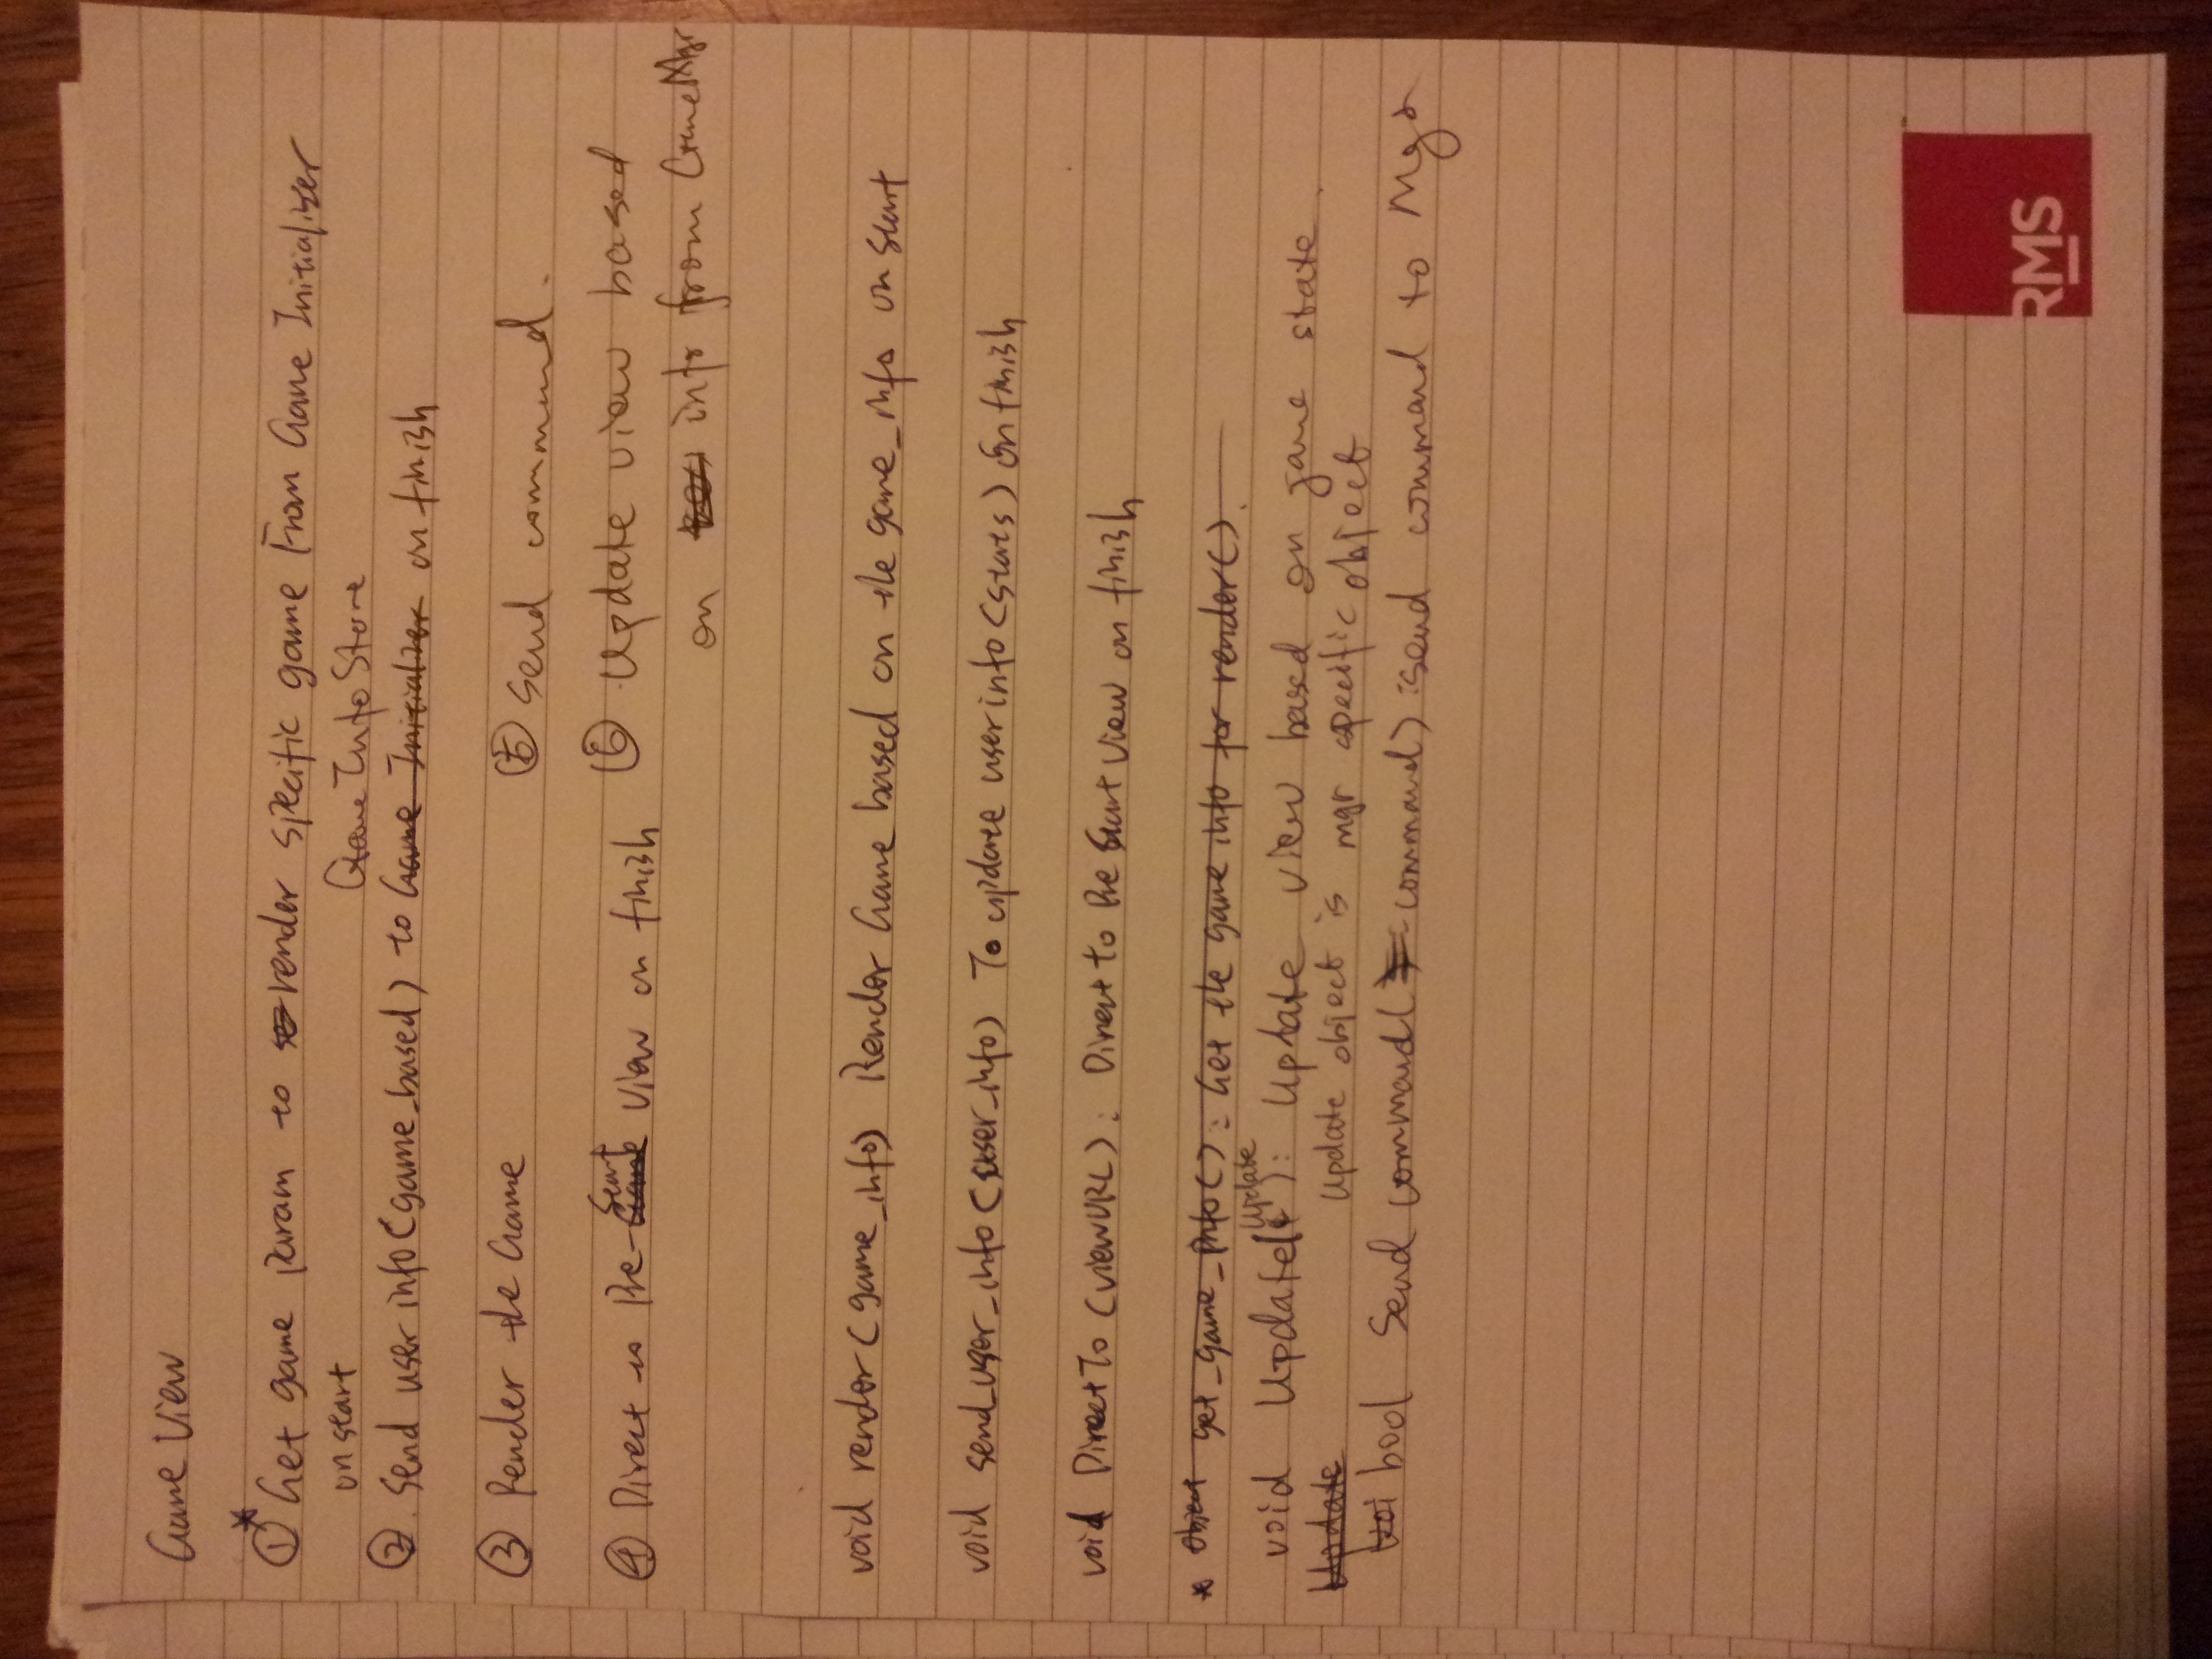 Game View
①* Get game param to render specific game From Game Initializer
on start
Game Info Store
②. Send user info (game_based) to Game Initializer on finish
③ Render the Game
⑤ Send command.
Start
④ Direct to Pre-Game View on finish
⑥ Update view based
on info from GameMgr
void render (game_info) Render Game based on the game_info on start
void send_user_info (user_info) To update user info (stats) on finish
void DirectTo (viewURL): Direct to Pre Start View on finish
* Object get_game_info(): Get the game info for render().
Update
void Update( ): Update view based on game state.
Update
Update object is mgr specific object
voi bool Send command( command) : send command to Mgr
RMS